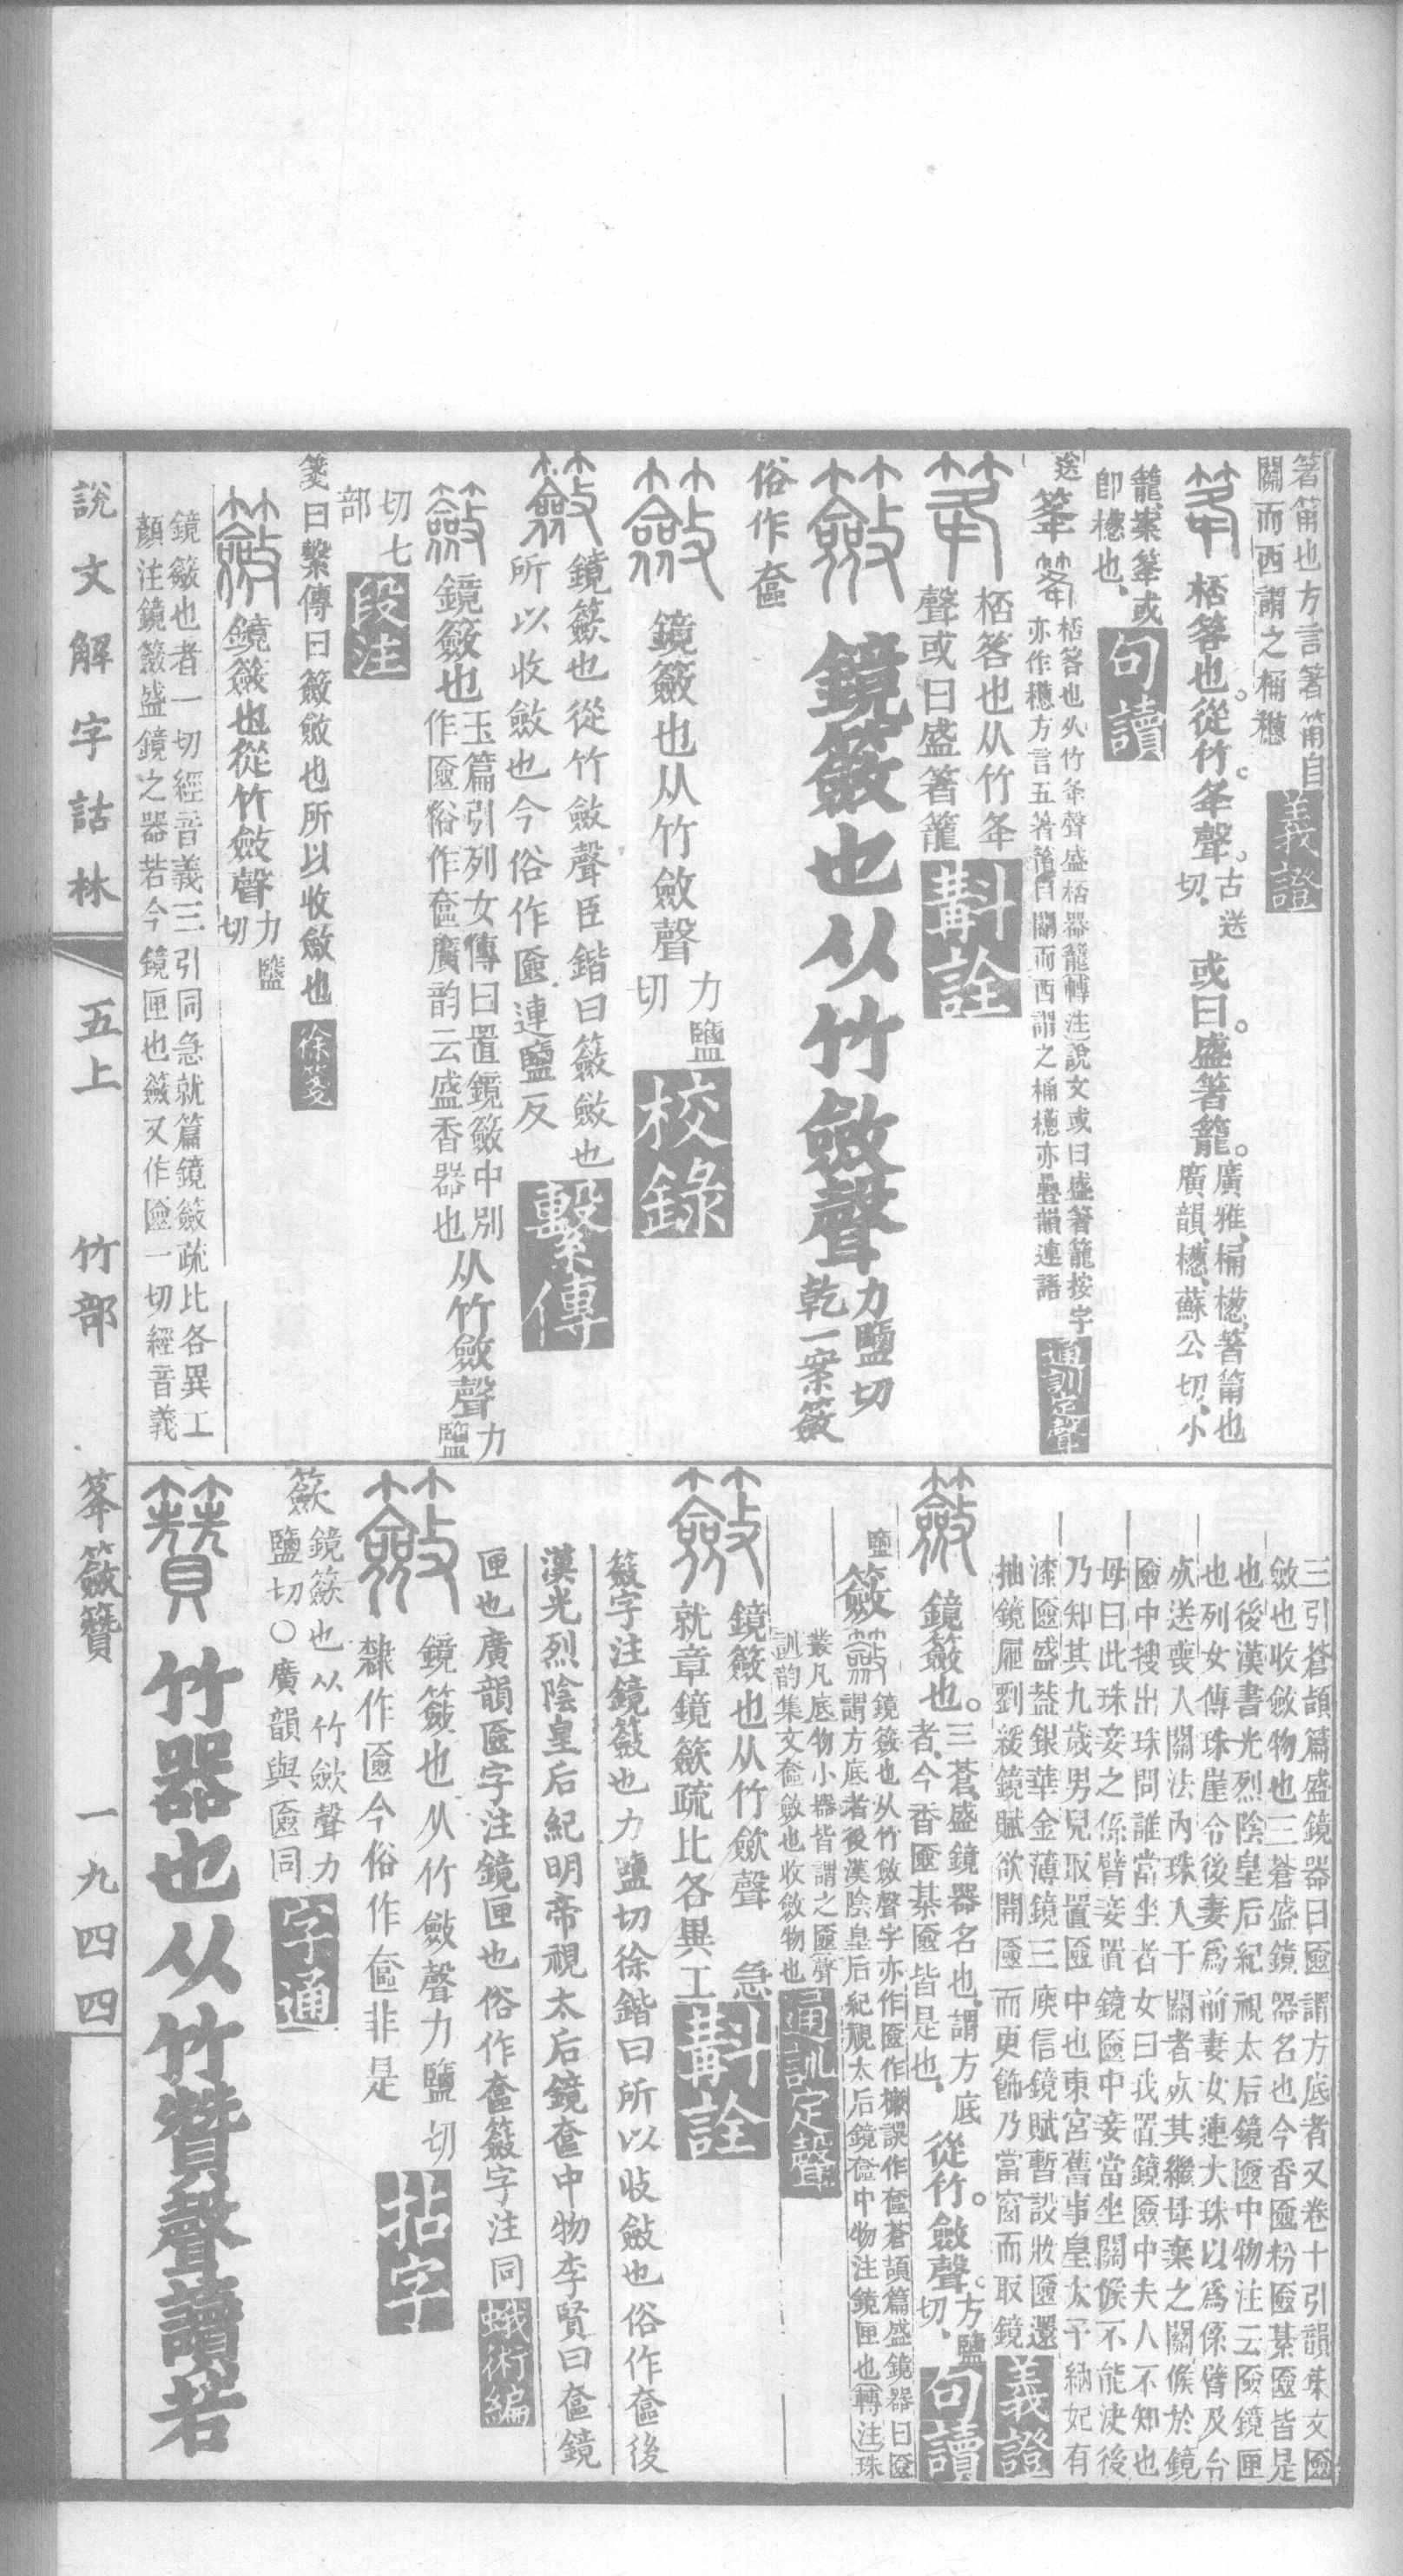 箸筩也方言箸筩自
關而西謂之桶檧
義證
桮笿也。從竹。夅聲。古送
切。
或曰。盛箸籠。廣雅、桶檧、箸筩也
廣韻、檧、蘇公切、小
籠、案、或
卽檧也、
句讀
送
桮笿也从竹夅聲盛桮器籠轉注說文或曰盛箸籠按字
亦作檧方言五箸筩自關而西謂之桶檧亦疊韻連語
通訓定聲
桮笿也从竹夅
聲或曰盛箸籠
斠詮
鏡籢也从竹斂聲力鹽切
乾一案籢
俗作奩
鏡籢也从竹斂聲力鹽
切
校錄
鏡籢也從竹斂聲臣鍇曰籢斂也
所以收斂也今俗作匳連鹽反
繫傳
鏡籢也玉篇引列女傳曰置鏡籢中別
作匳俗作奩廣韵云盛香器也
从竹斂聲力鹽
切七
部
段注
箋曰繫傳曰籢斂也所以收斂也
徐箋
鏡籢也從竹斂聲力鹽
切
鏡籢也者一切經音義三引同急就篇鏡籢疏比各異工
顏注鏡籢盛鏡之器若今鏡匣也籢又作匳一切經音義
三引蒼頡篇盛鏡器曰匳謂方底者又卷十引韻集文匳
斂也收斂物也三蒼盛鏡器名也今香匳粉匳棊匳皆是
也後漢書光烈陰皇后紀視太后鏡匳中物注云匳鏡匣
也列女傳珠崖令後妻爲前妻女連大珠以爲係臂及令
死送喪人關法內珠入于關者死其繼母棄之關候於鏡
匳中搜出珠問誰當坐者女曰我置鏡匳中夫人不知也
母曰此珠妾之係臂妾置鏡匳中妾當坐關候不能決後
乃知其九歲男兒取置匳中也東宮舊事皇太子納妃有
漆匳盛葢銀華金薄鏡三庾信鏡賦暫設妝匳還
抽鏡屜劉緩鏡賦欲開匳而更飾乃當窗而取鏡
義證
鏡籢也。三蒼、盛鏡器名也、謂方底
者、今香匳棊匳皆是也、
從竹。斂聲。力鹽
切、
句讀
鹽
籢
鏡籢也从竹斂聲字亦作匳作㯬誤作奩蒼頡篇盛鏡器曰匳
謂方底者後漢陰皇后紀視太后鏡奩中物注鏡匣也轉注珠
叢凡底物小器皆謂之匳聲
訓韵集文奩斂也收斂物也
通訓定聲
鏡籢也从竹斂聲　急
就章鏡籢疏比各異工
斠詮
籢字注鏡籢也力鹽切徐鍇曰所以收斂也俗作奩後
漢光烈陰皇后紀明帝視太后鏡奩中物李賢曰奩鏡
匣也廣韻匳字注鏡匣也俗作奩籢字注同
蛾術編
鏡籢也从竹斂聲力鹽切
隸作匳今俗作奩非是
拈字
籢
鏡籢也从竹斂聲力
鹽切○廣韻與匳同
字通
竹器也从竹贊聲讀若
說文解字詁林
五上
竹部
籢籫
一九四四